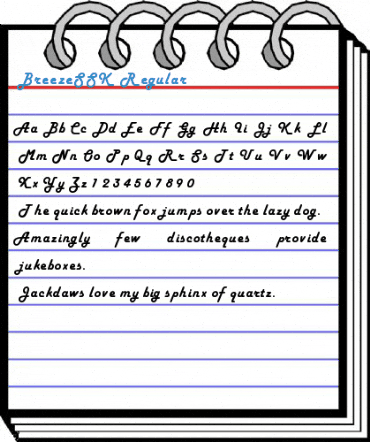 BreezeSSK Regular
Aa Bb Cc Dd Ee Ff Gg Hh Ii Jj Kk Ll
Mm Nn Oo Pp Qq Rr Ss Tt Uu Vv Ww
Xx Yy Zz 1 2 3 4 5 6 7 8 9 0
The quick brown fox jumps over the lazy dog.
Amazingly few discotheques provide
jukeboxes.
Jackdaws love my big sphinx of quartz.